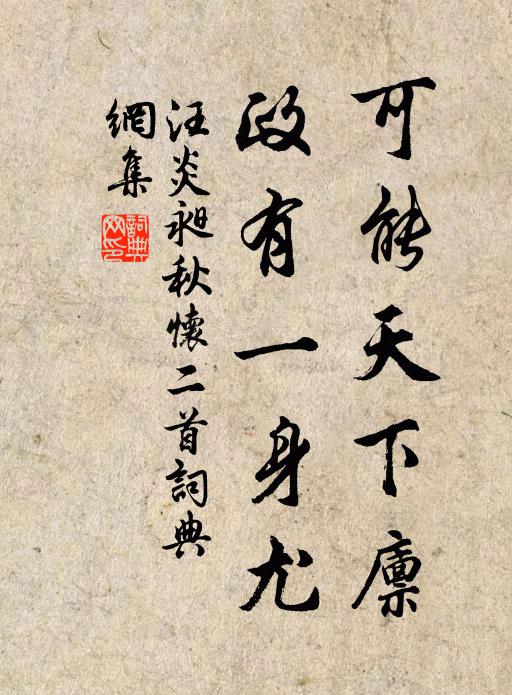 可能天下廪
政有一身尤
汪炎昶秋懷二首詞典
網集
詞典
网印